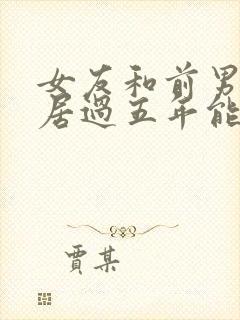 女友和前男
居過五年能
賈某